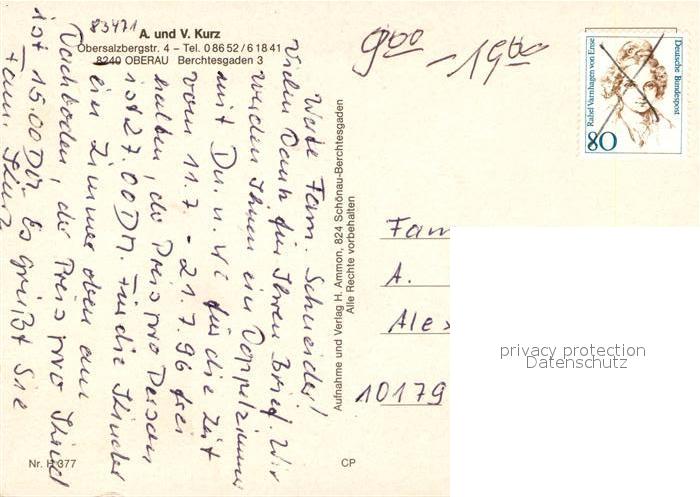 83471
A. und V. Kurz
Obersalzbergstr. 4 – Tel. 0 86 52 / 6 18 41
8240 OBERAU Berchtesgaden 3
Werte Fam. Schneider!
Vielen Dank für Ihren Brief. Wir
werden Ihnen ein Doppelzimmer
mit Du. u. Wc für die Zeit
vom 11.7. - 21.7.96 frei
halten, der Preis pro Person
ist 27.00 DM. Für die Kinder
ein Zimmer oben am
Dachboden, der Preis pro Kind
ist 15.00 DM. Es grüßt Sie
Fam. Kurz
Nr. H 377
Aufnahme und Verlag H. Ammon, 824 Schönau-Berchtesgaden
Alle Rechte vorbehalten
CP
900 - 1900
Rahel Varnhagen von Ense
Deutsche Bundespost
80
Fam
A.
Alex
10179
privacy protection
Datenschutz